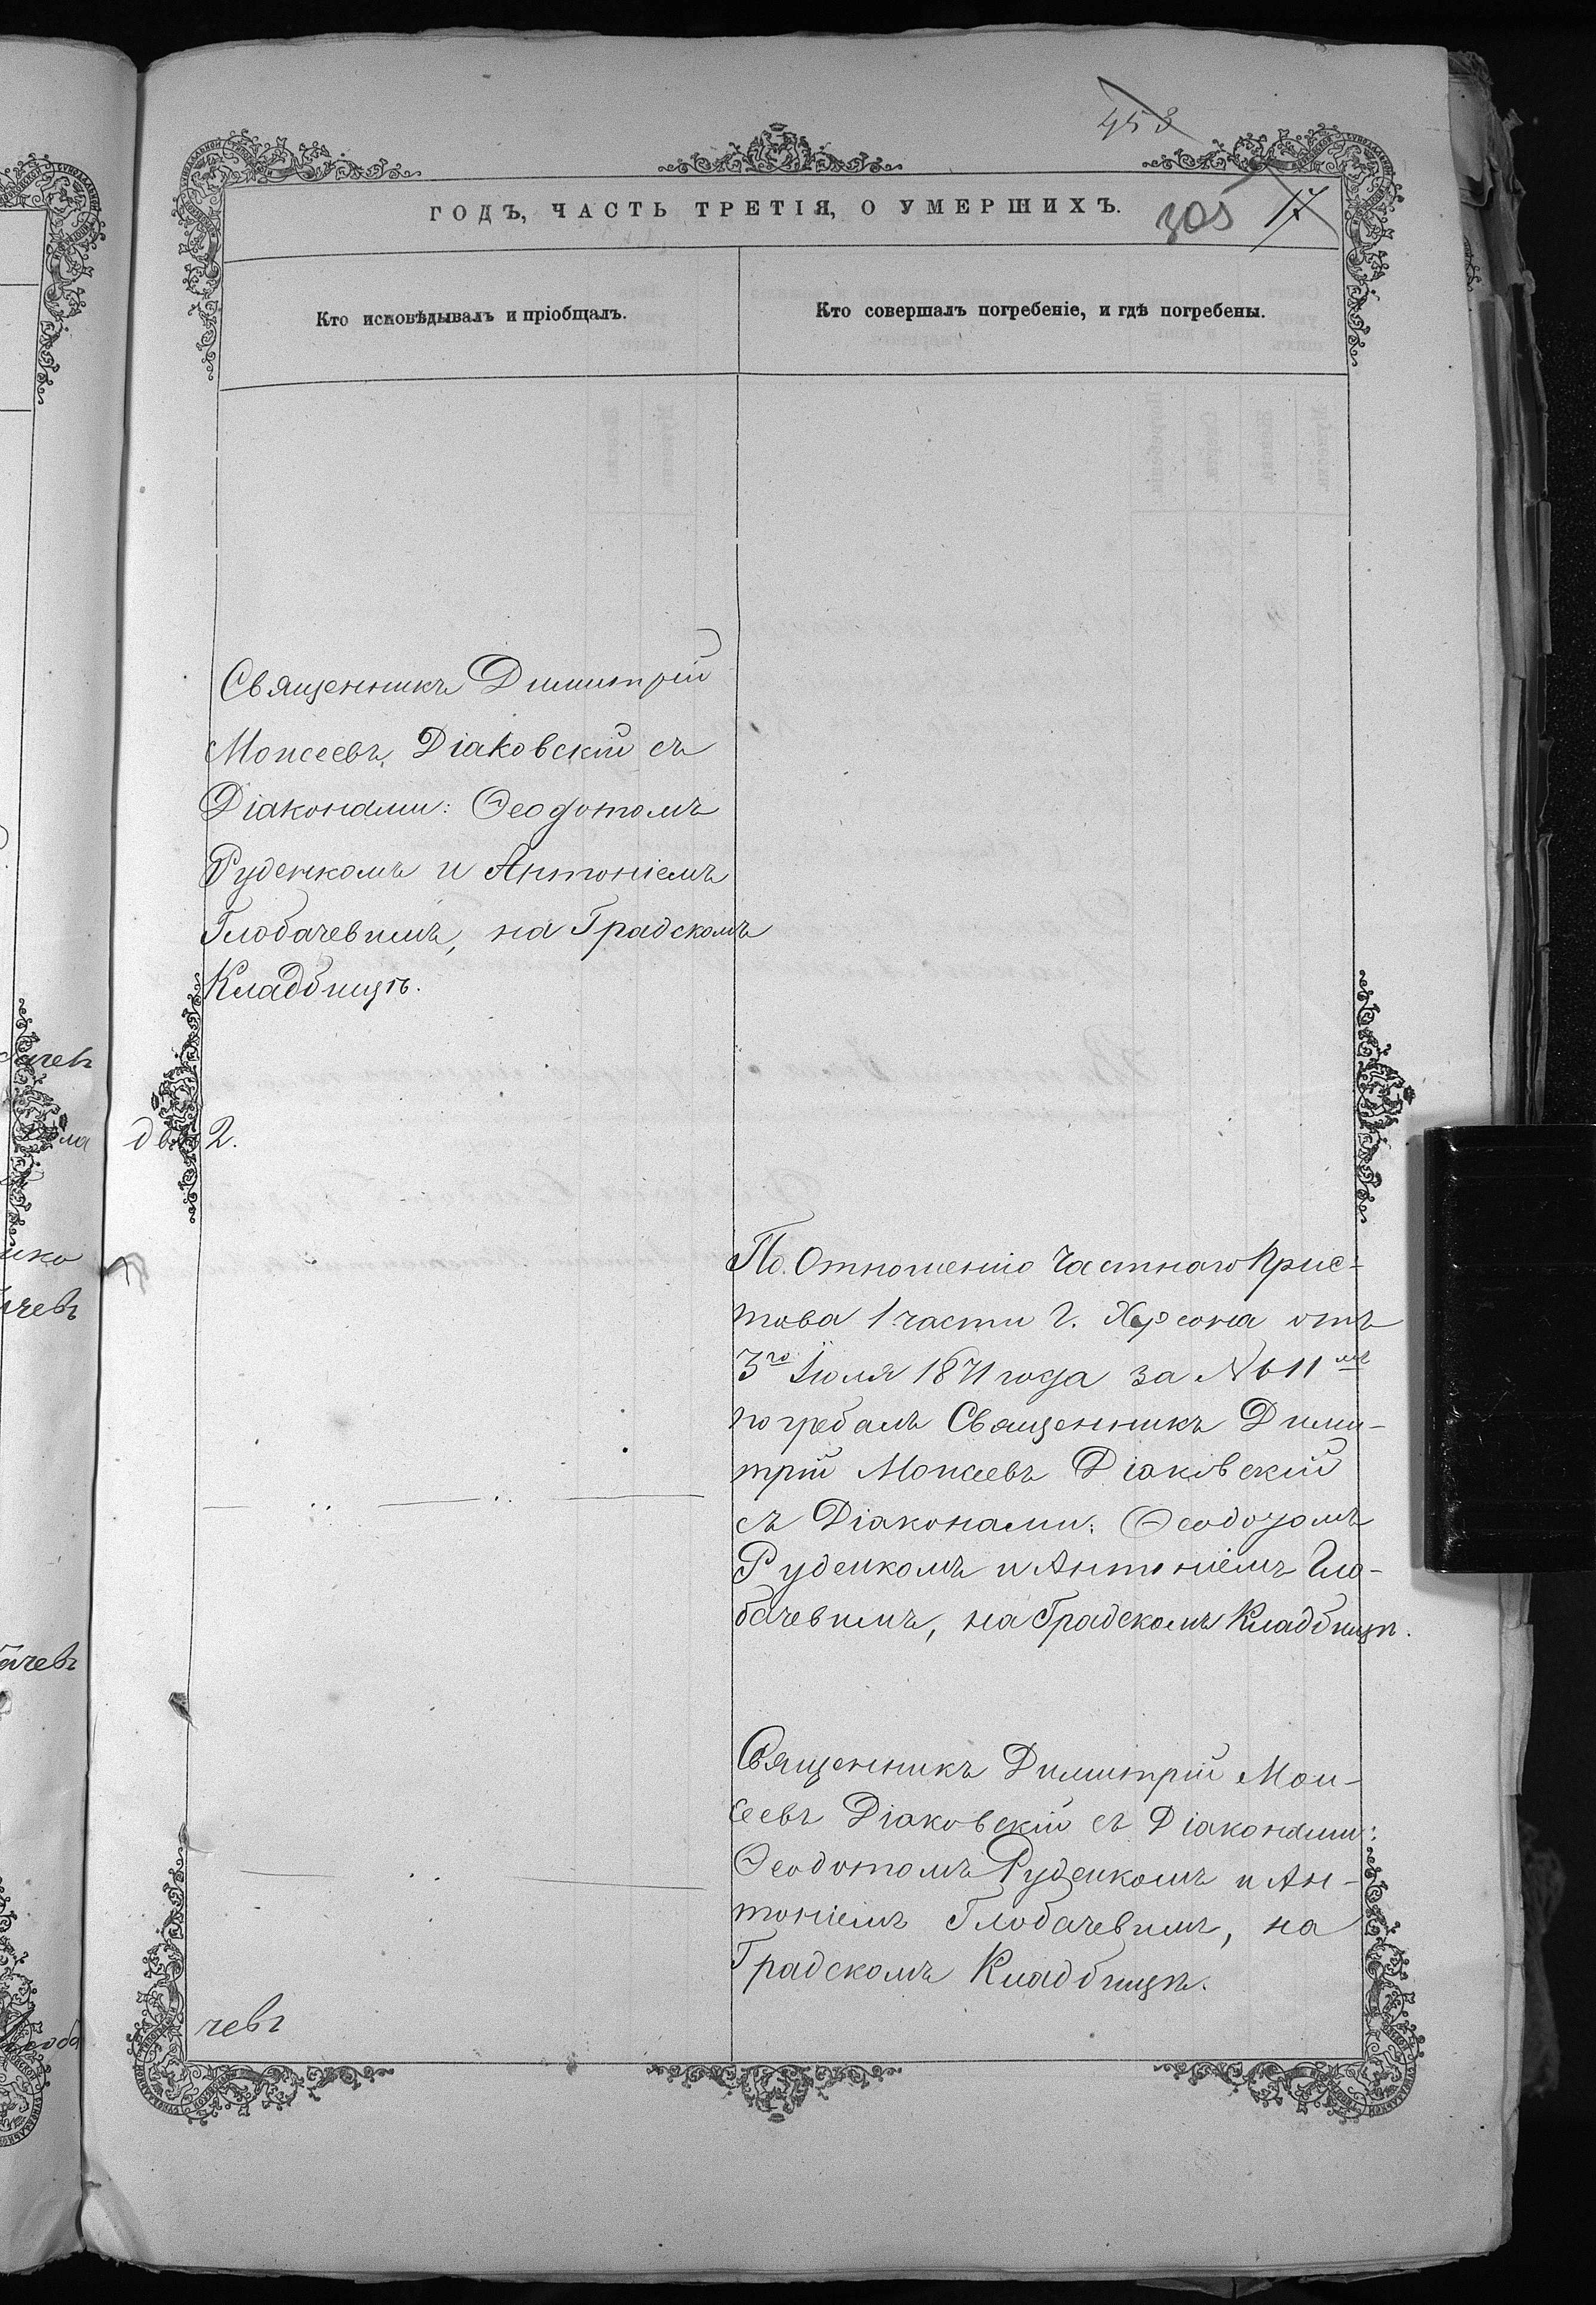 453
ГОДЪ, ЧАСТЬ ТРЕТІЯ, О УМЕРШИХЪ.
305 17
Кто исповѣдывалъ и пріобщалъ.
Кто совершалъ погребеніе, и гдѣ погребены.
Священникъ Димитрій
Моисеевъ Діаковскій съ
Діаконами: Ѳеодотомъ
Руденкомъ и Антоніемъ
Глобачевимъ, на Градскомъ
Кладбищѣ.
2.
По Отношенію Частнаго Прис-
това 1 части г. Херсона отъ
3го Іюля 1871 года за № 611мъ
погребалъ Священникъ Дими-
трій Моисеевъ Діаковскій
съ Діаконами: Ѳеодотомъ
Руденкомъ и Антоніемъ Гло-
бачевимъ, на Градскомъ Кладбищѣ.
Священникъ Димитрій Мои-
сеевъ Діаковскій съ Діаконами:
Ѳеодотомъ Руденкомъ и Ан-
тоніемъ Глобачевимъ, на
Градскомъ Кладбищѣ.
чевъ